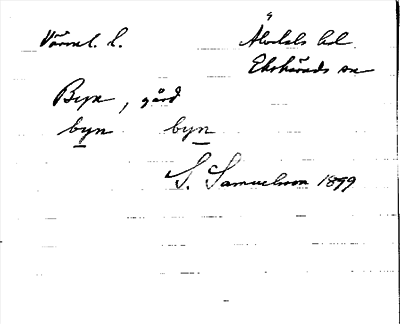 Värml. l. Älvdals hd
Ekshärads sn
Byn, gård
byn byn
S. Samuelsson 1899